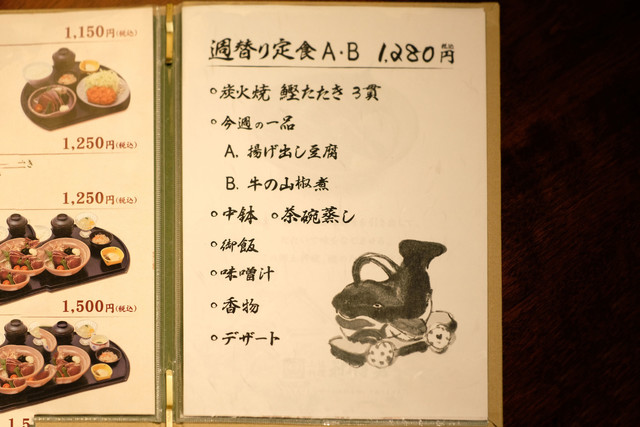 1,150円(税込)
1,250円(税込)
1,250円(税込)
1,500円(税込)
週替り定食A・B 1.280税込円
○炭火焼 鰹たたき 3貫
○今週の一品
A. 揚げ出し豆腐
B. 牛の山椒煮
○中鉢 ○茶碗蒸し
○御飯
○味噌汁
○香物
○デザート